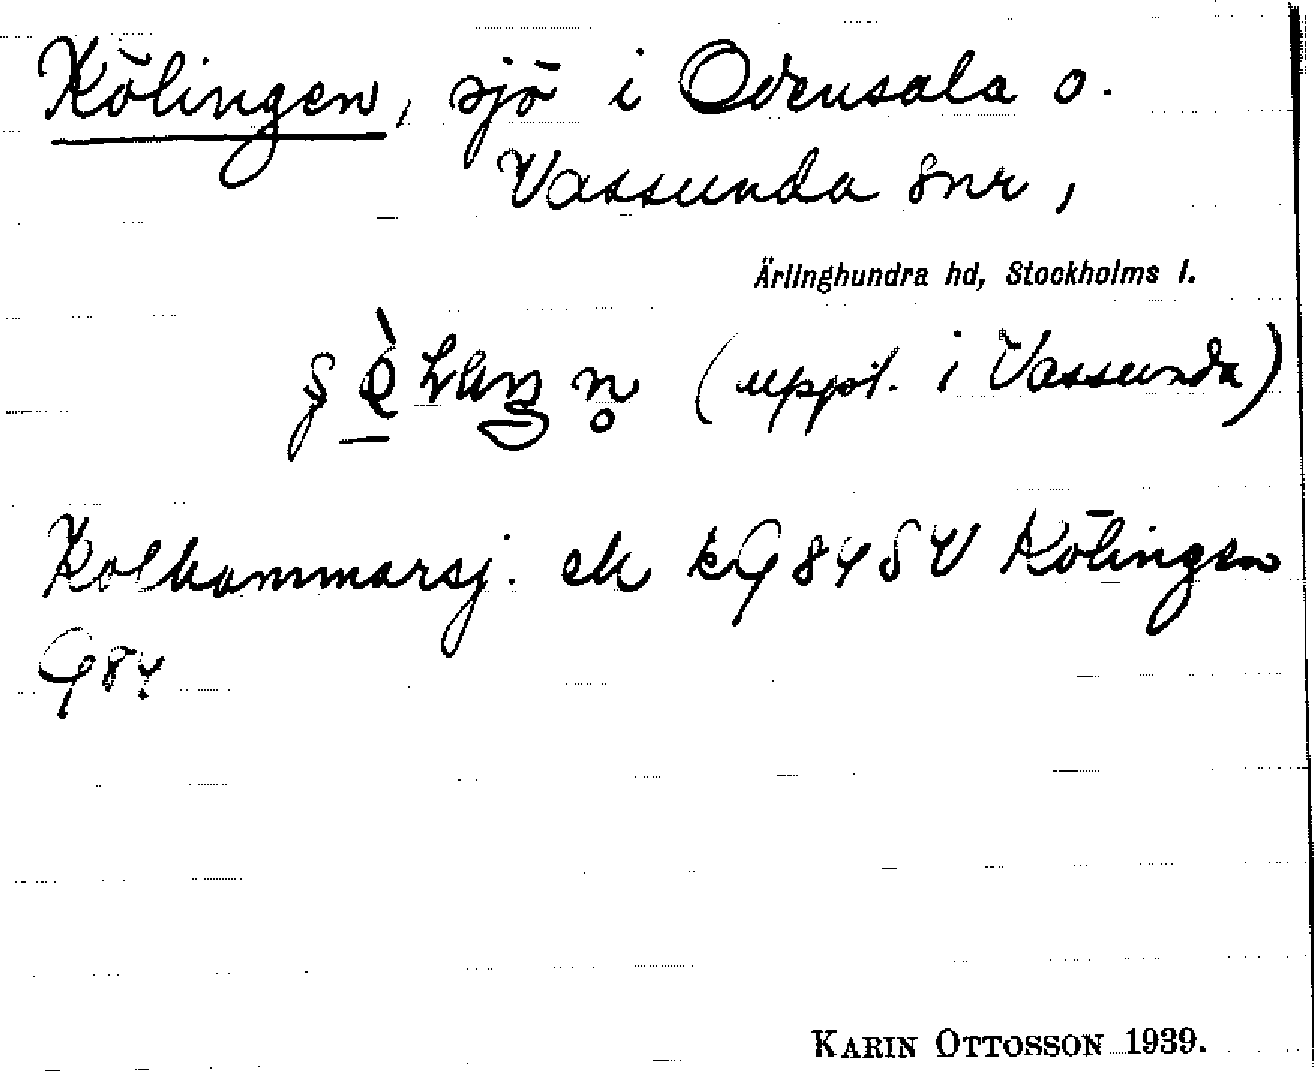 Kölingen, sjö i Odensala o.
Vassunda snr,
Ärlinghundra hd, Stockholms l.
(uppt. i Vassunda)
Kolhammarsj. ek kG 84 SV Kölingen
G 84
KARIN OTTOSSON 1939.